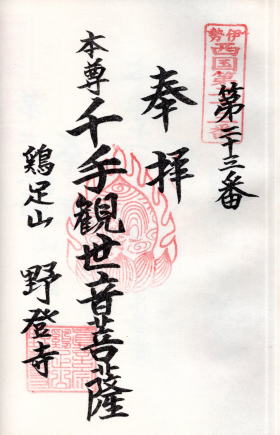 伊勢
西国第
第二十三番
奉拝
本尊 千手観世音菩薩
鶏足山 野登寺